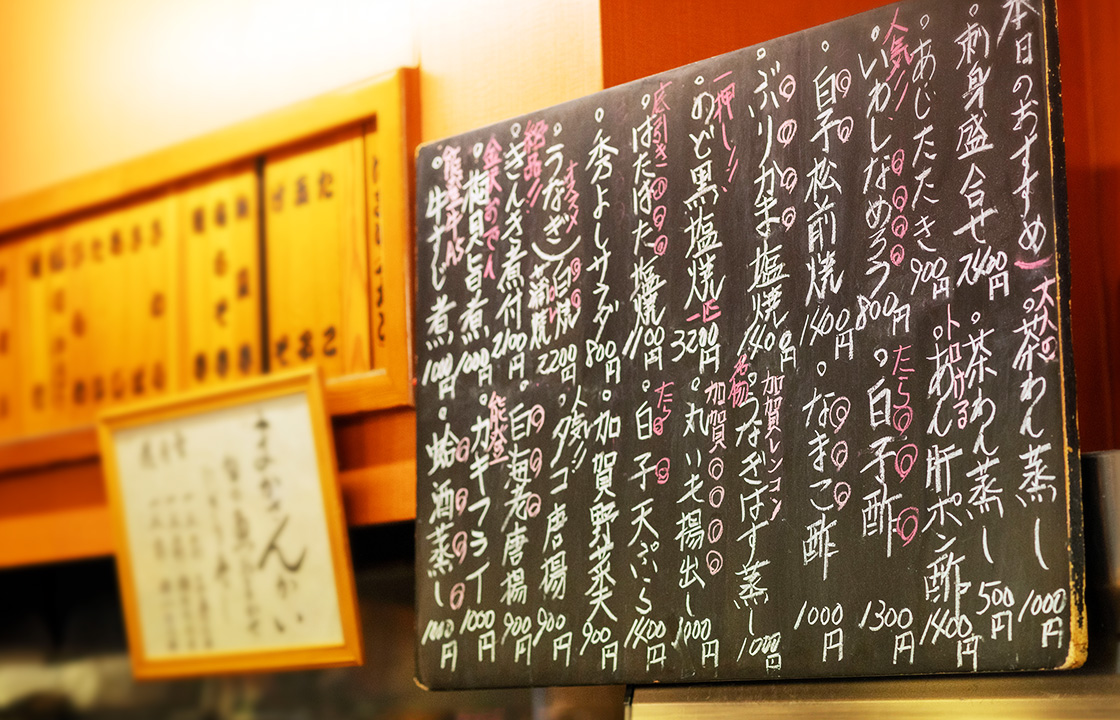 本日のおすすめ
大人の
茶わん蒸し 1000円
刺身盛合せ 2400円
茶わん蒸し 500円
あじたたき 900円
トロける
あん肝ポン酢 1400円
人気!!
いわしなめろう 800円
たら
白子酢 1300円
白子松前焼 1400円
なまこ酢 1000円
ぶりかま塩焼 1400円
加賀レンコン
名物
うなぎはす蒸し 1000円
一押し!!
のど黒塩焼 一匹 3200円
加賀
丸いも揚出し 1000円
底引き
はたはた塩焼 1100円
たら
白子天ぷら 1400円
秀よしサラダ 800円
加賀野菜天 900円
オススメ
うなぎ 白焼 蒲焼 2200円
人気!!
タコ唐揚 900円
絶品!!
きんき煮付 2100円
白海老唐揚 900円
金沢おでん
梅貝旨煮 1000円
能登
カキフライ 1000円
能登牛A5
牛すじ煮 1000円
蛤酒蒸し 1000円